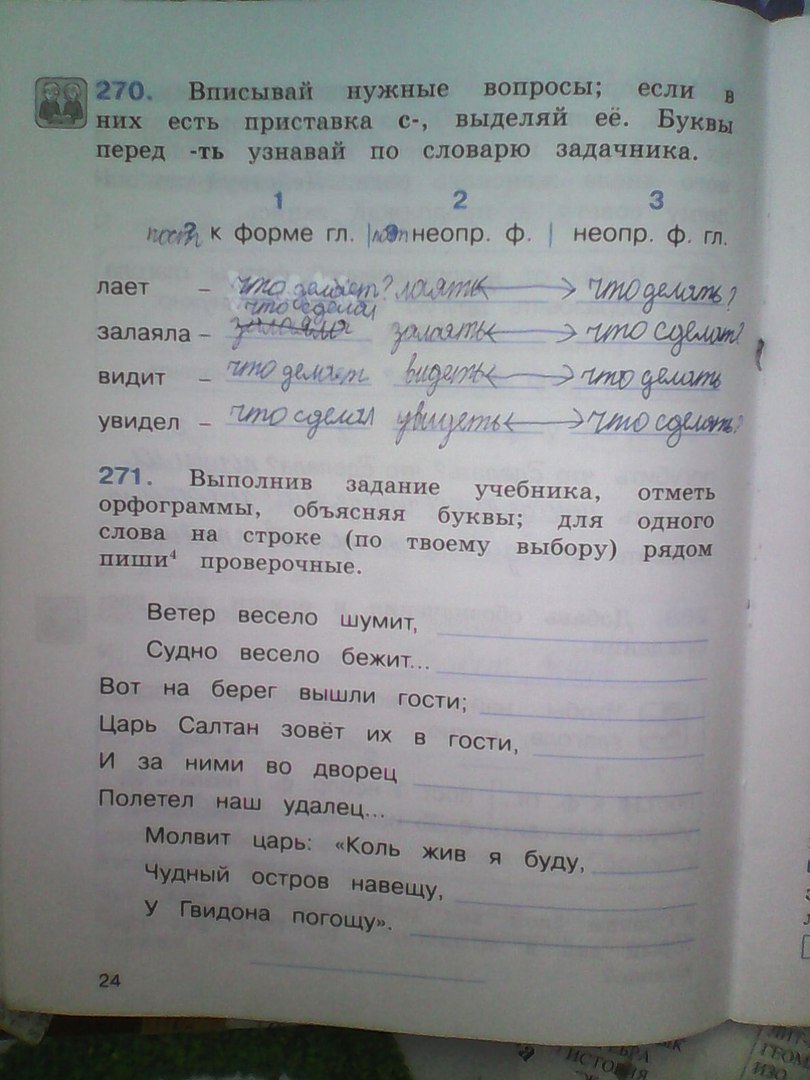 270. Вписывай нужные вопросы; если в
них есть приставка с-, выделяй её. Буквы
перед -ть узнавай по словарю задачника.
1 2 3
к форме гл. | неопр. ф. | неопр. ф. гл.
лает – что делает? лаять ↔ что делать?
что сделал
залаяла – залаяла залаять ↔ что сделать?
видит – что делает видеть ↔ что делать
увидел – что сделал увидеть ↔ что сделать?
271. Выполнив задание учебника, отметь
орфограммы, объясняя буквы; для одного
слова на строке (по твоему выбору) рядом
пиши⁴ проверочные.
Ветер весело шумит,
Судно весело бежит...
Вот на берег вышли гости;
Царь Салтан зовёт их в гости,
И за ними во дворец
Полетел наш удалец...
Молвит царь: «Коль жив я буду,
Чудный остров навещу,
У Гвидона погощу».
24
ИСТОРИЯ
ГЕОМ
ИЗО